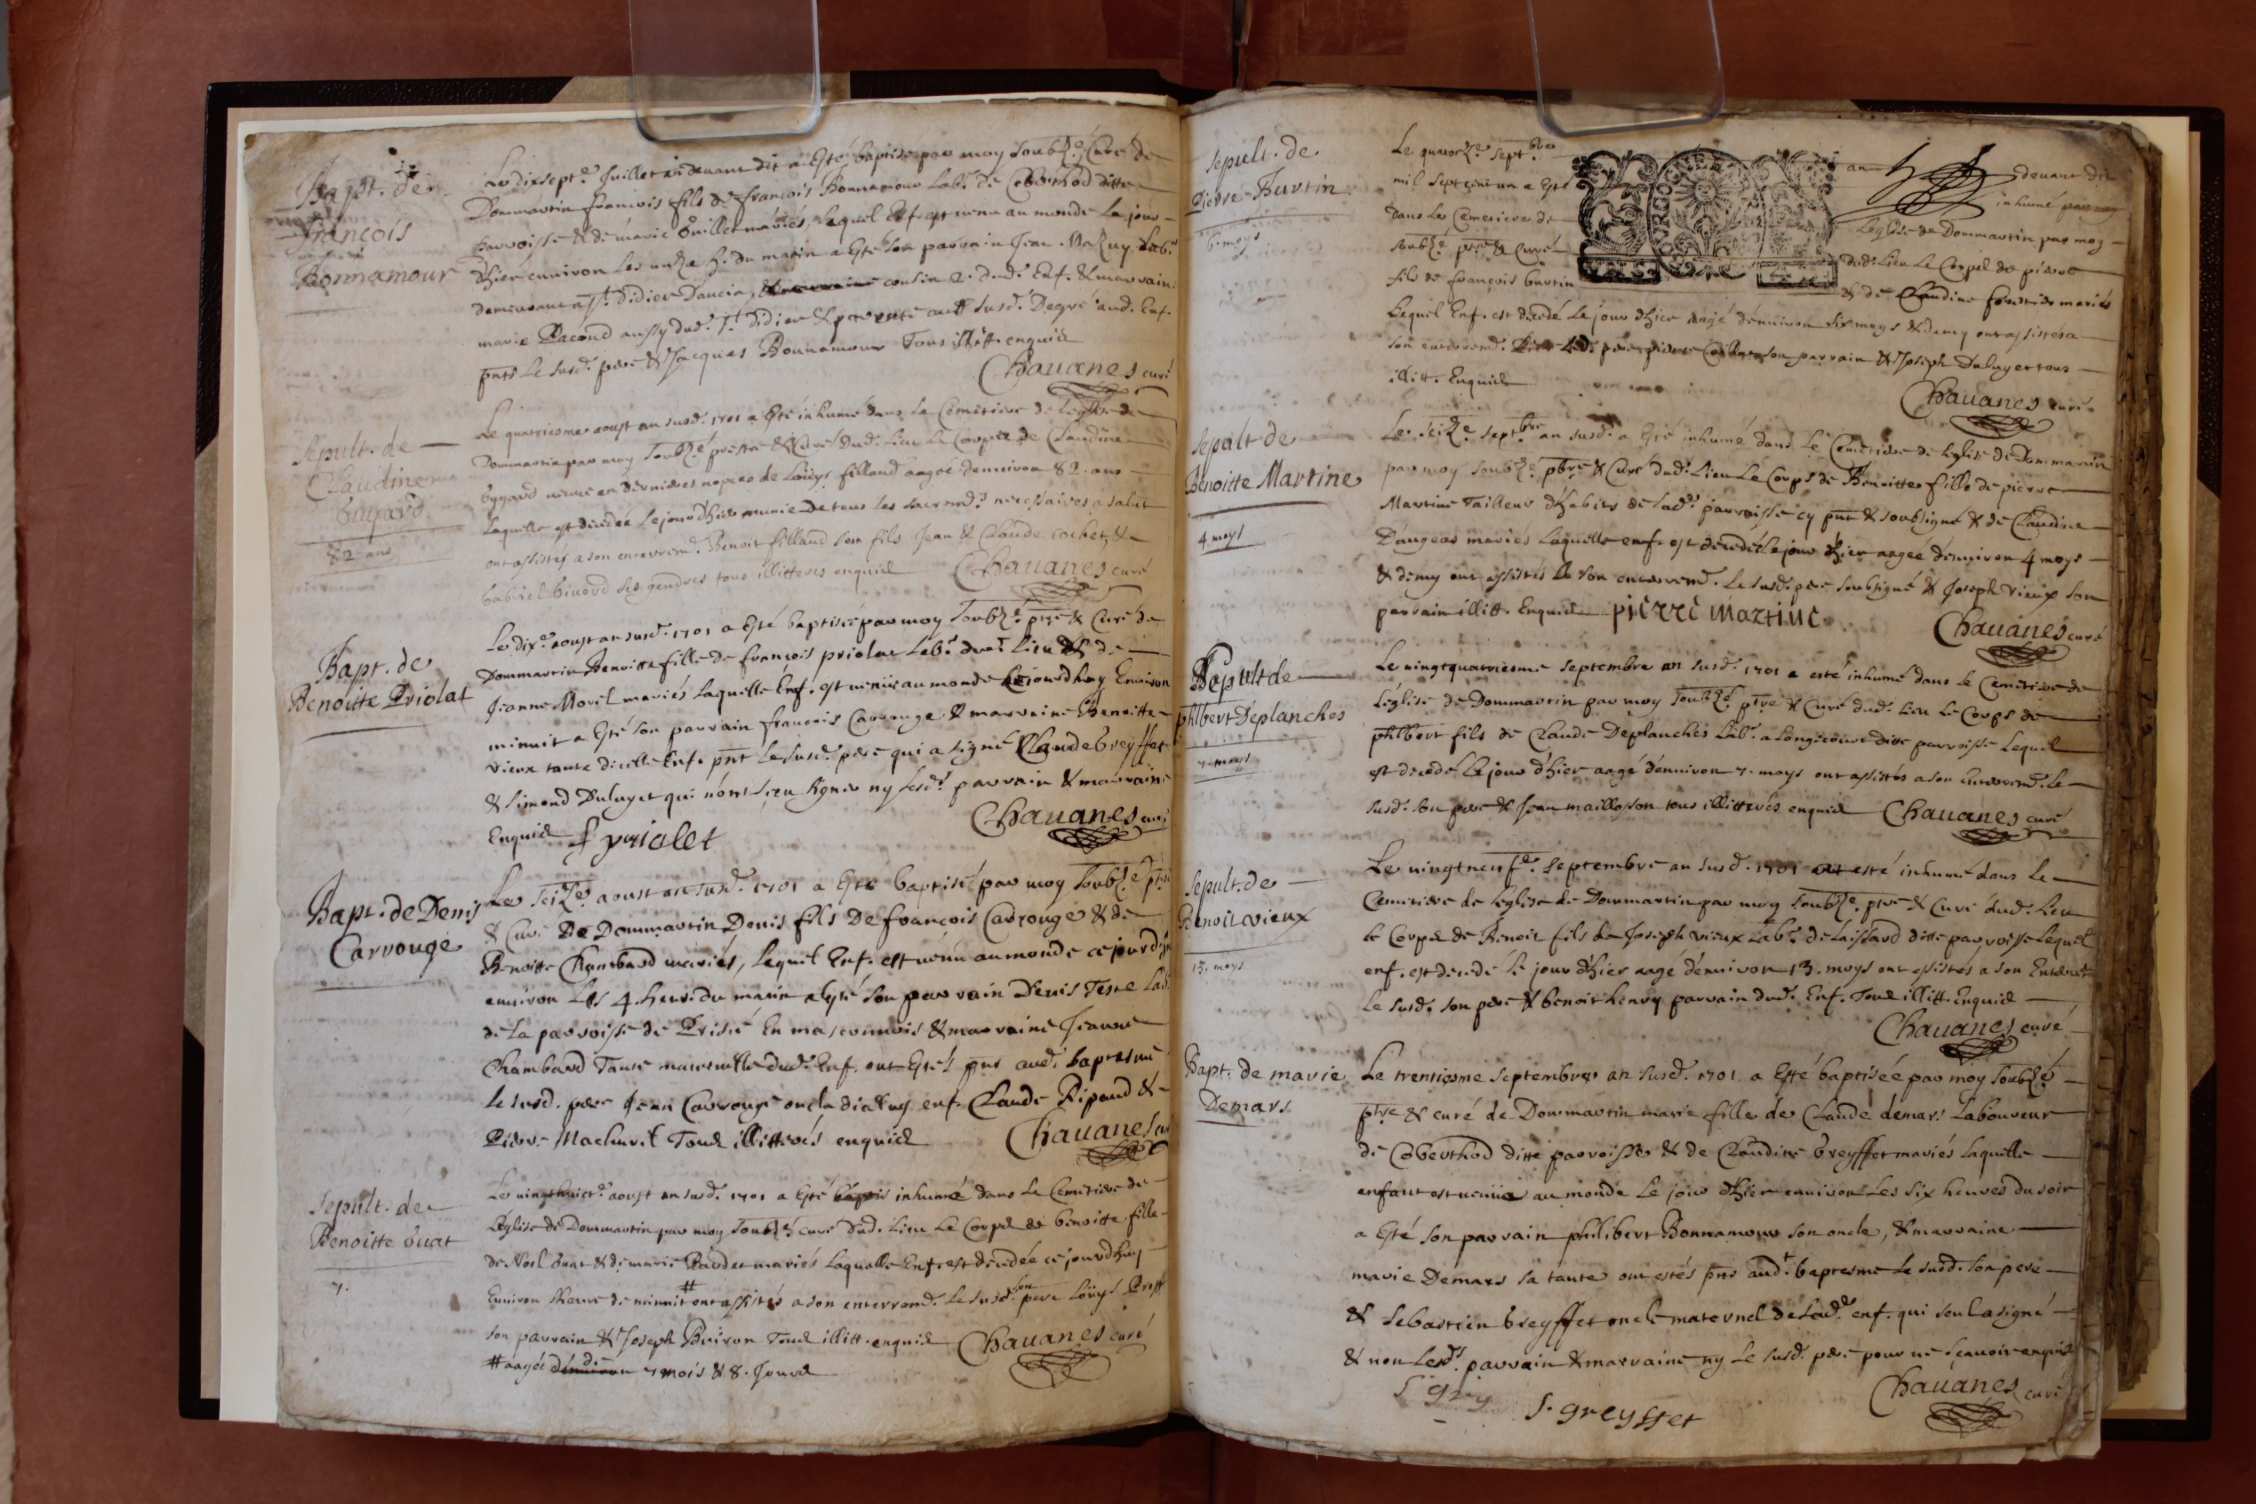 Bapt. de
françois
Bonnamour
Le dixsept.e Juillet an devant dit a Esté baptisé par moy soubz.é Curé de
Dommartin francois fils de francois Bonnamour Lab.r de Coberthod ditte
parroisse & de marie mariés, Lequel Enf. est venu au monde Le jour
d'hier environ les unze h. du matin a Esté son parrain Jean Lab.r
demeurant a S.t Didier cousin dud. Enf. & marraine
marie aussy dud. S.t Didier & parente au susd. Degré aud. Enf.
pnts Le susd. pere & Jacques Bonnamour Tous illitt. enquis
Chauanes curé
Sepult. de
Claudine
bayard
82 ans
Le quatriesme aoust an susd. 1701 a Esté inhumé dans Le Cemetiere de L'eglise de
Dommartin par moy soubz.é prestre & Curé dud. Lieu Le Corps de Claudine
bygard veuve en dernieres nopces de Louys filland aagée d'environ 82. ans
Laquelle est decedée Le jour d'hier munie de tous les sacrem.ts necessaires a salut
ont assistés a son enterrem.t Benoit filland son fils Jean & Claude cochet &
gabriel ses gendres tous illitteres enquis Chauanes curé
Bapt. de
Benoitte Priolat
Le dix.e aoust an susd. 1701 a Esté baptisée par moy soubz.é ptre & Curé de
Dommartin Benoitte fille de francois priolat Lab.r dud. Lieu & de
Jeanne Morel mariés Laquelle Enf. est venüe au monde cejourdhuy Environ
minuit a Esté son parrain francois Carrouge & marraine Benoitte
vieux tante dicelle Enf. pnt Le susd. pere qui a signé Claude breyffet
& Simond Duluyet qui n'ont sceu signer ny lesd.s parrain & marraine
Enquis f priolet Chauanes curé
Bapt. de Denis
Carrouge
Le seiz.e aoust an susd. 1701 a Esté baptisé par moy soubz.é ptre
& Curé De Dommartin Denis fils De francois Carrouge & de
Benoitte Chambard mariés, Lequel Enf. est venu au monde ce jourd'huy
environ Les 4. heures du matin a Esté son parrain Denis Teste Lab.
de La parroisse de Prissé En masconnois & marraine Jeanne
Chambard Tante maternelle dud. Enf. ont Estés pnts aud. baptesme
Le susd. pere Jean Carrouge oncle enf. Claude Ripaud &
Pierre Tous illitterés enquis Chauanes curé
Sepult. de
Benoitte buat
7.
Le vingthuict.e aoust an susd. 1701 a Esté inhumé dans Le Cemetiere de
L'église de Dommartin par moy soubz.é curé dud. Lieu Le Corps de benoitte fille
de Noel buat & de marie mariés Laquelle Enf. est decedée ce jourdhuy
Environ L'heure de minuit # ont assistés a son enterrem.t Le susd. son pere Loüys
son parrain & Joseph Buiron Tous illitt. enquis Chauanes curé
# aagée de 7 mois & 8. Jours
Sepult. de
Pierre Burtin
6. moys
Le quatorz.e sept.bre an devant dit
mil sept cent un a Esté inhumé par moy
Dans Le Cemetiere de L'église de Dommartin par moy
soubz.é ptre & Curé dud. Lieu Le Corps de pierre
fils de francois burtin & de Claudine mariés
Lequel Enf. est decedé Le jour d'hier aagé d'environ six moys & demy ont assistés a
son enterrem.t Led. pere pierre son parrain & Joseph Duluyet tous
illitt. Enquis
Chauanes curé
Sepult de
Benoitte Martine
4 moys
Le seiz.e sept.bre an susd. a Esté inhumé dans Le Cemetiere de L'église de Dommartin
par moy soubz.é pbre & Curé dud. Lieu Le Corps de Benoitte fille de pierre
Martine Tailleur d'habits de lad. parroisse cy pnt & soubsigné & de Claudine
Dangeas mariés Laquelle enf. est decedée Le jour d'hier aagée d'environ 4 moys
& demy ont assistés a son enterrem.t Le susd. pere soubsigné & Joseph vieux son
parrain illitt. Enquis pierre Martine
Chauanes curé
Sepult de
philbert Deplanches
7. moys
Le vingtquatriesme septembre an susd. 1701 a esté inhumé dans Le Cemetiere de
L'église de Dommartin par moy soubz.é ptre & Curé dud. Lieu Le Corps de
philbert fils de Claude Deplanches Lab.r a ditte parroisse Lequel
est decedé Le jour d'hier aagé d'environ 7. moys ont assistés a son enterrem.t Le
susd. son pere & Jean maillosson tous illitterés enquis Chauanes curé
Sepult. de
Benoit vieux
13. moys
Le vingtneuf.e septembre an susd. 1701 a esté inhumé dans Le
Cemetiere de L'église de Dommartin par moy soubz.é ptre & Curé dud. Lieu
Le Corps de Benoit fils de Joseph vieux Lab.r de ditte parroisse Lequel
enf. est decedé Le jour d'hier aagé d'environ 13. moys ont assistés a son Enterrem.t
Le susd. son pere & benoit henry parrain dud. Enf. Tous illitt. Enquis
Chauanes curé
Bapt. de marie
Demars
Le trentiesme Septembre an susd. 1701 a Esté baptisée par moy soubz.é
ptre & curé de Dommartin marie fille de Claude demars Laboureur
de Coberthod ditte parroisse & de Claudine breyffet mariés Laquelle
enfant est venüe au monde Le jour d'hier environ Les six heures du soir
a Esté son parrain philibert Bonnamour son oncle, & marraine
marie Demars sa tante ont estés pnts aud.t baptesme Le susd. son pere
& Sebastien breyffet oncle maternel de Lad.e enf. qui seul a signé
& non Lesd.s parrain & marraine ny Le susd. pere pour ne sçavoir enquis
Chauanes curé
S. greysset